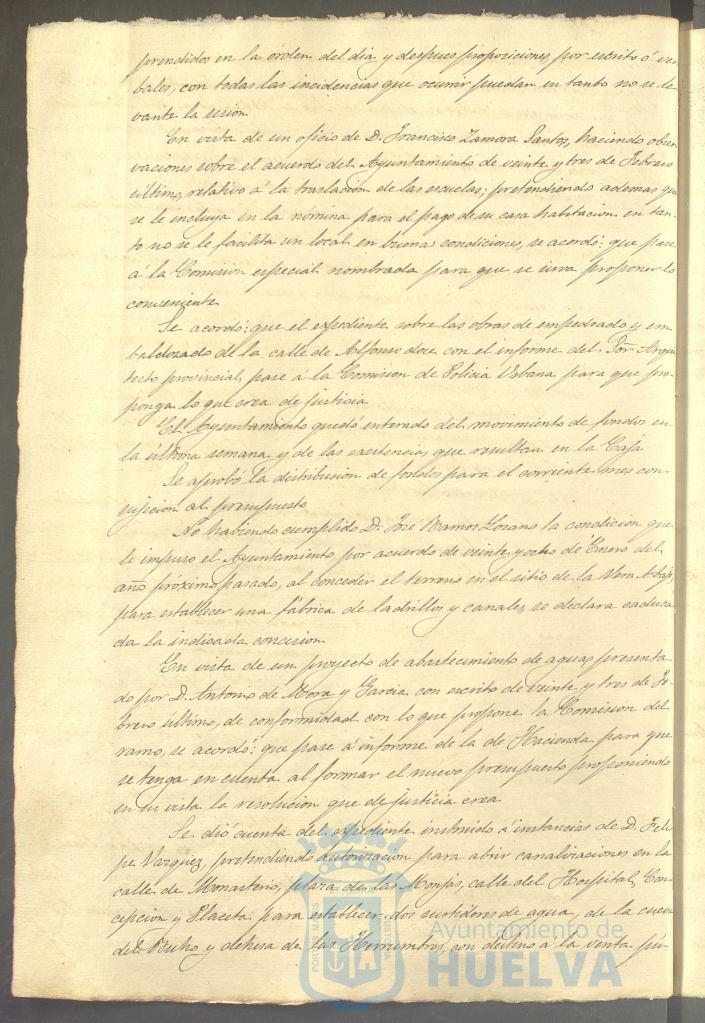 prendidos en la órden del dia y despues proposiciones por escrito ó ver
bales, con todas las incidencias que ocurrir puedan en tanto no se le
vante la sesion.
En vista de un oficio de D. Francisco Zamora Santos, haciendo obser
vaciones sobre el acuerdo del Ayuntamiento de veinte y tres de Febrero
último, relativo á la traslacion de las escuelas; pretendiendo ademas que
se le incluya en la nómina para el pago de su casa habitacion en tan-
to no se le facilita un local en buenas condiciones, se acordó: que pase
á la Comision especial nombrada para que se sirva proponer lo
conveniente.
Se acordó: que el expediente sobre las obras de empedrado y em
baldosado de la calle de Alfonso doce, con el informe del Sor. Arqui
tecto provincial, pase á la Comision de Policia Urbana para que pro-
ponga lo que crea de justicia.
El Ayuntamiento quedó enterado del movimiento de fondos en
la última semana y de las existencias que resultan en la Caja
Se aprobó la distribucion de fondos para el corriente mes con
sujecion al presupuesto
No habiendo cumplido D. José Ramos Lozano la condicion que
le impuso el Ayuntamiento por acuerdo de veinte y ocho de Enero del
año próximo pasado, al conceder el terreno en el sitio de la Vera Abajo,
para establecer una fábrica de ladrillos y canales, se declara caduca
da la indicada concesion.
En vista de un proyecto de abastecimiento de aguas presenta-
do por D. Antonio de Mora y Garcia, con escrito de veinte y tres de Fe-
brero último, de conformidad con lo que propone la Comision del
ramo, se acordó: que pase á informe de la de Hacienda para que
se tenga en cuenta al formar el nuevo presupuesto proponiendo
en su vista la resolucion que de justicia crea.
Se dió cuenta del expediente instruido á instancias de D. Feli
pe Vazquez, pretendiendo autorizacion para abrir canalizaciones en la
calle de Monasterio, plaza de las Monjas, calle del Hospital, Con-
cepcion y Placeta para establecer dos surtidores de agua, de la cueva
del Buho y dehesa de las Herrumbres, con destino á la venta pú-
Ayuntamiento de
HUELVA